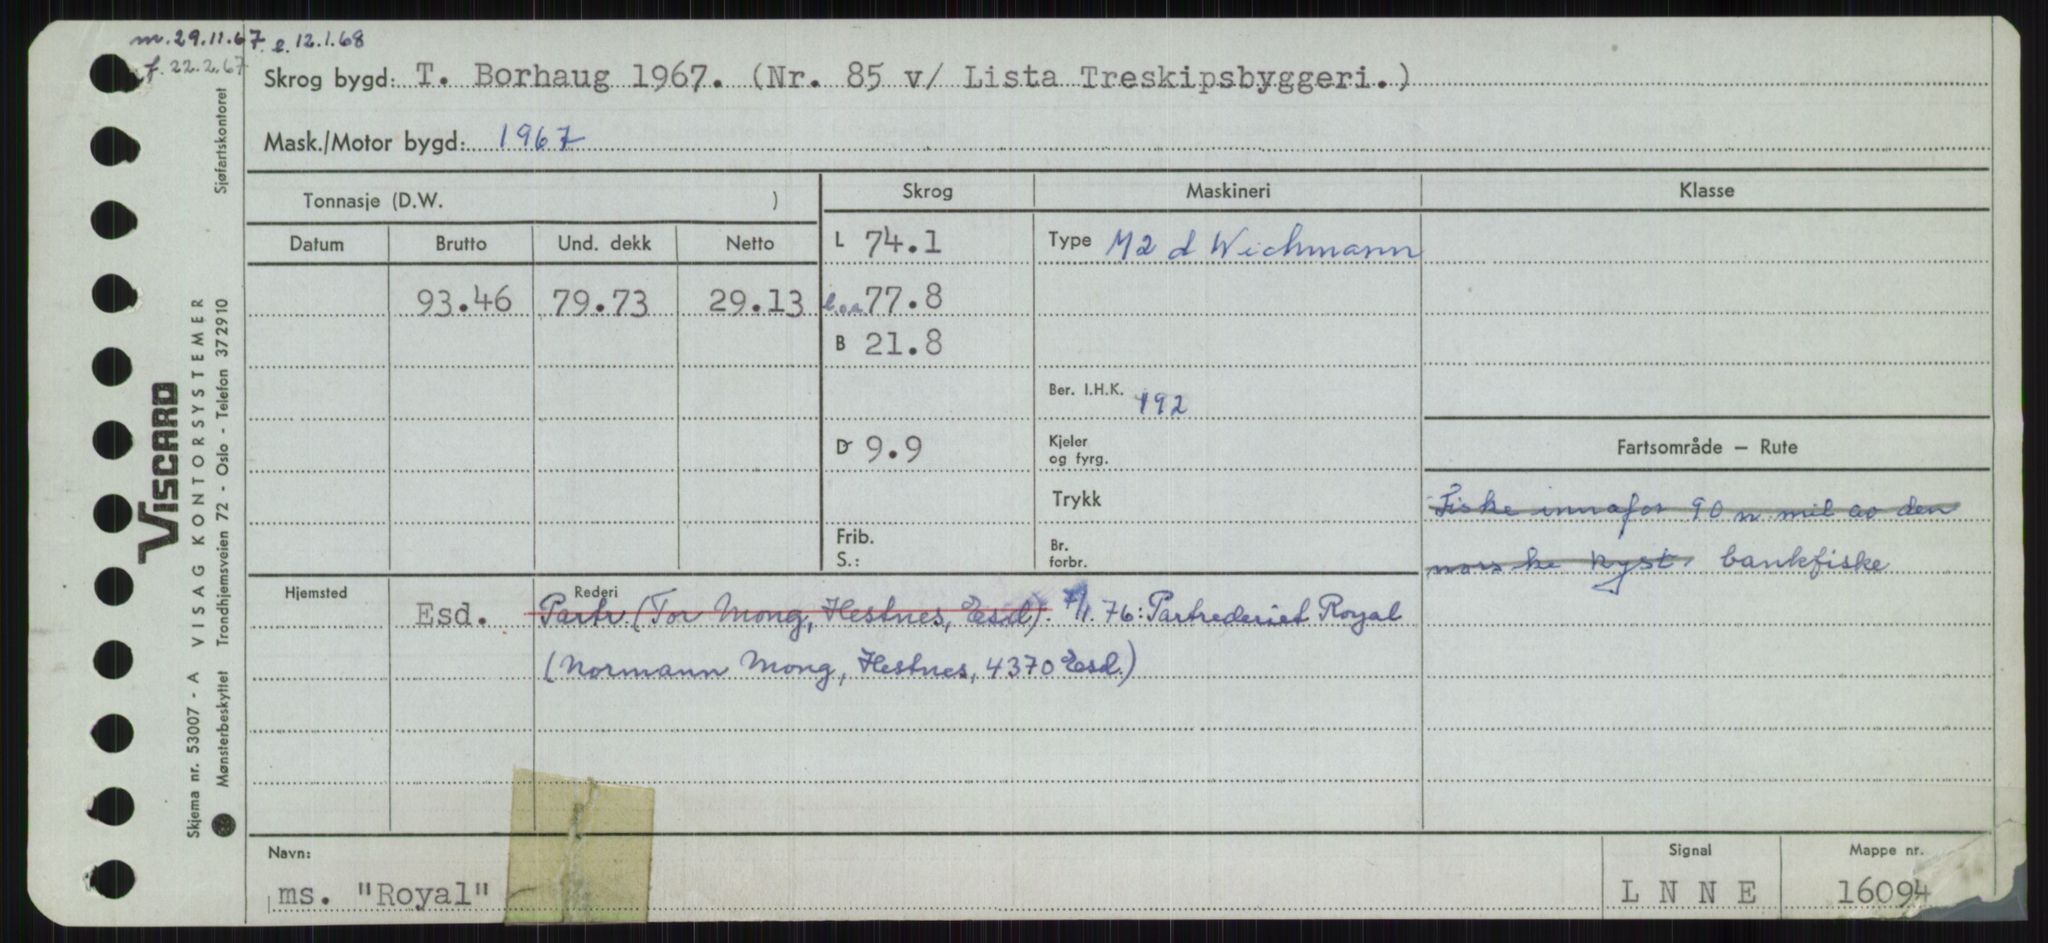 m. 29.11.67. e. 12.1.68
f. 22.2.67
Skrog bygd: T. Borhaug 1967. (Nr. 85 v/ Lista Treskipsbyggeri.)
Mask./Motor bygd: 1967
Tonnasje (D.W. )
Skrog Maskineri Klasse
Datum Brutto Und. dekk Netto
L 74.1
Type M2 d Wichmann
93.46 79.73 29.13
l.o.a. 77.8
B 21.8
Ber. I.H.K. 192
D 9.9
Kjeler
og fyrg.
Fartsområde — Rute
Trykk
Fiske innafor 90 n mil av den
norske kyst, bankfiske
Frib.
S.:
Br.
forbr.
Hjemsted Rederi
Esd. Partr. (Tor Mong, Hestnes, Esd). 7/1.76: Partrederiet Royal
(Normann Mong, Hestnes, 4370 Esd.)
Navn: Signal Mappe nr.
ms. "Royal" L N N E 16094
VISCARD
VISAG KONTORSYSTEMER
Skjema nr. 53007 - A
Mønsterbeskyttet Trondhjemsveien 72 - Oslo - Telefon 372910
Sjøfartskontoret